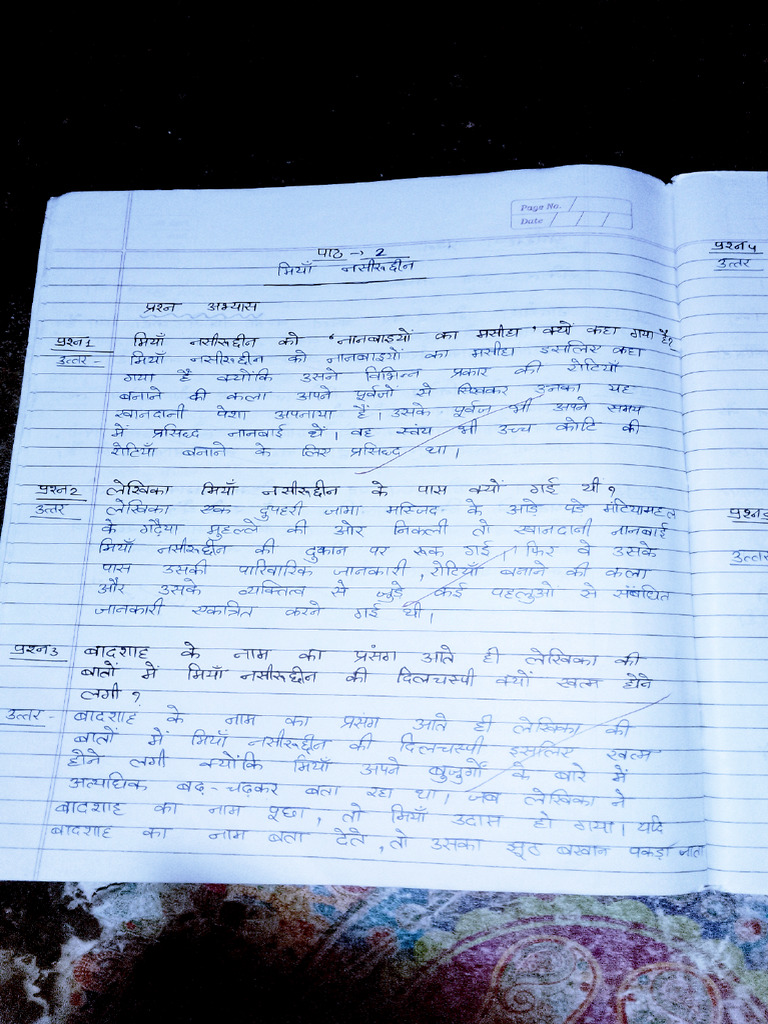 Page No.
Date
पाठ → 2
मियाँ नसीरूद्दीन
प्रश्न अभ्यास
प्रश्न1 मियाँ नसीरूद्दीन को 'नानबाइयों का मसीहा' क्यों कहा गया है?
उत्तर - मियाँ नसीरूद्दीन को नानबाइयों का मसीहा इसलिए कहा
गया है क्योंकि उसने विभिन्न प्रकार की रोटियाँ
बनाने की कला अपने पूर्वजों से सिखकर उनका यह
खानदानी पेशा अपनाया है। उसके पूर्वज भी अपने समय
में प्रसिद्ध नानबाई थें। वह स्वंय भी उच्च कोटि की
रोटियाँ बनाने के लिए प्रसिद्ध था।
प्रश्न2 लेखिका मियाँ नसीरूद्दीन के पास क्यों गई थी?
उत्तर लेखिका एक दुपहरी जामा मस्जिद के आड़े पड़े मटियामहल
के गढ़ैया मुहल्ले की ओर निकली तो खानदानी नानबाई
मियाँ नसीरूद्दीन की दुकान पर रूक गई। फिर वे उसके
पास उसकी पारिवारिक जानकारी, रोटियाँ बनाने की कला
और उसके व्यक्तित्व से जुड़े कई पहलुओ से संबंधित
जानकारी एकत्रित करने गई थी।
प्रश्न3 बादशाह के नाम का प्रसंग आते ही लेखिका की
बातों में मियाँ नसीरूद्दीन की दिलचस्पी क्यों खत्म होने
लगी?
उत्तर - बादशाह के नाम का प्रसंग आते ही लेखिका की
बातों में मियाँ नसीरूद्दीन की दिलचस्पी इसलिए खत्म
होने लगी क्योंकि मियाँ अपने बुजुर्गों के बारे में
अत्यधिक बढ़-चढ़कर बता रहा था। जब लेखिका ने
बादशाह का नाम पूछा, तो मियाँ उदास हो गया। यदि
बादशाह का नाम बता देते, तो उसका झूठ बखान पकड़ा जाता
प्रश्न4
उत्तर
प्रश्न5
उत्तर